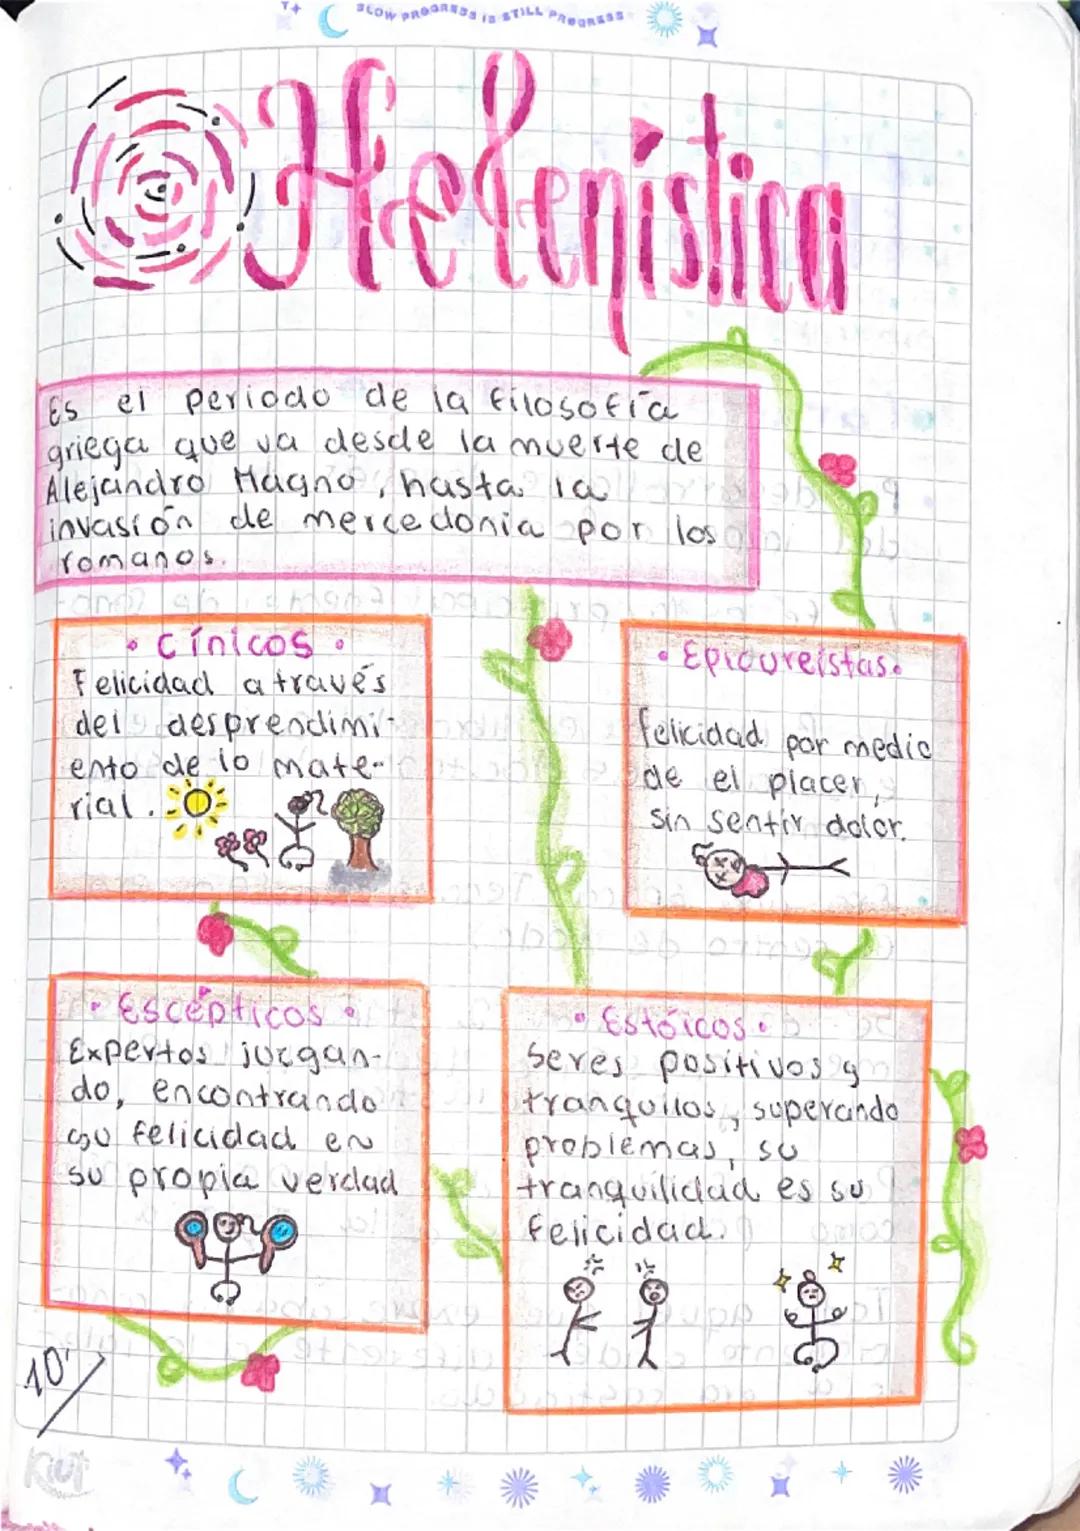 SLOW PROGRESS IS STILL PROGRESS
Helenística
Es el periodo de la filosofía
griega que va desde la muerte de
Alejandro Magno, hasta la
invasión de mercedonia por los
romanos.
• Cínicos •
Felicidad a través
del desprendimi-
ento de lo mate-
rial.
• Epicureistas •
felicidad por medio
de el placer,
sin sentir dolor.
• Escépticos •
Expertos juzgan-
do, encontrando
su felicidad en
su propia verdad
• Estóicos •
Seres positivos y
tranquilos, superando
problemas, su
tranquilidad es su
felicidad.
10'
Kiut